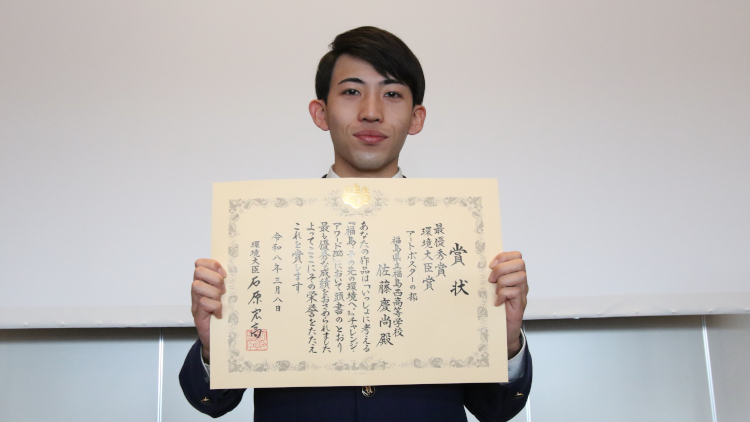 賞状
最優秀賞
環境大臣賞
アートポスターの部
福島県立福島西高等学校
佐藤慶尚殿
あなたの作品は「いっしょに考える
『福島、その先の環境へ。』チャレンジ・
アワード2025」において頭書のとおり
最も優秀な成績をおさめられました
よってここにその栄誉をたたえ
これを賞します
令和八年三月八日
環境大臣 石原宏高